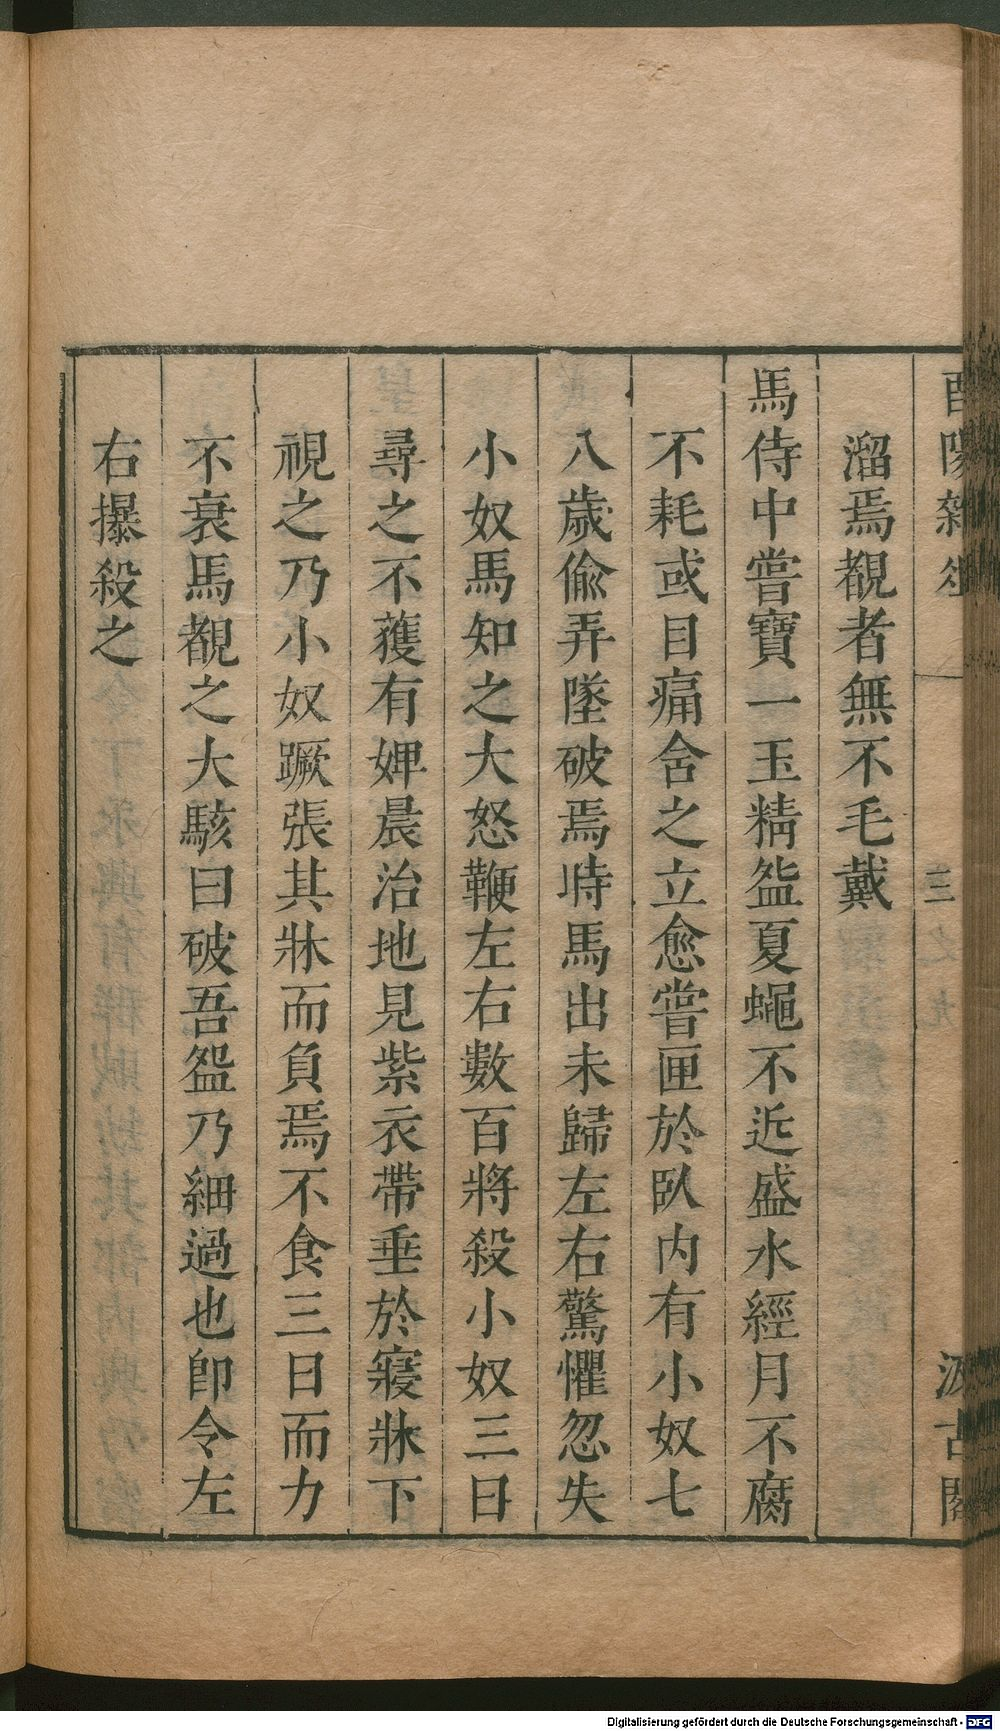 酉陽雜俎
三
汲古閣
溜焉覩者無不毛戴
馬侍中嘗寶一玉精盌夏蠅不近盛水經月不腐
不耗或目痛含之立愈嘗匣於臥內有小奴七
八歲偸弄墜破焉時馬出未歸左右驚懼忽失
小奴馬知之大怒鞭左右數百將殺小奴三日
尋之不獲有婢晨治地見紫衣帶垂於寢牀下
視之乃小奴蹶張其牀而負焉不食三日而力
不衰馬覩之大駭曰破吾盌乃細過也卽令左
右㩧殺之
Digitalisierung gefördert durch die Deutsche Forschungsgemeinschaft - DFG